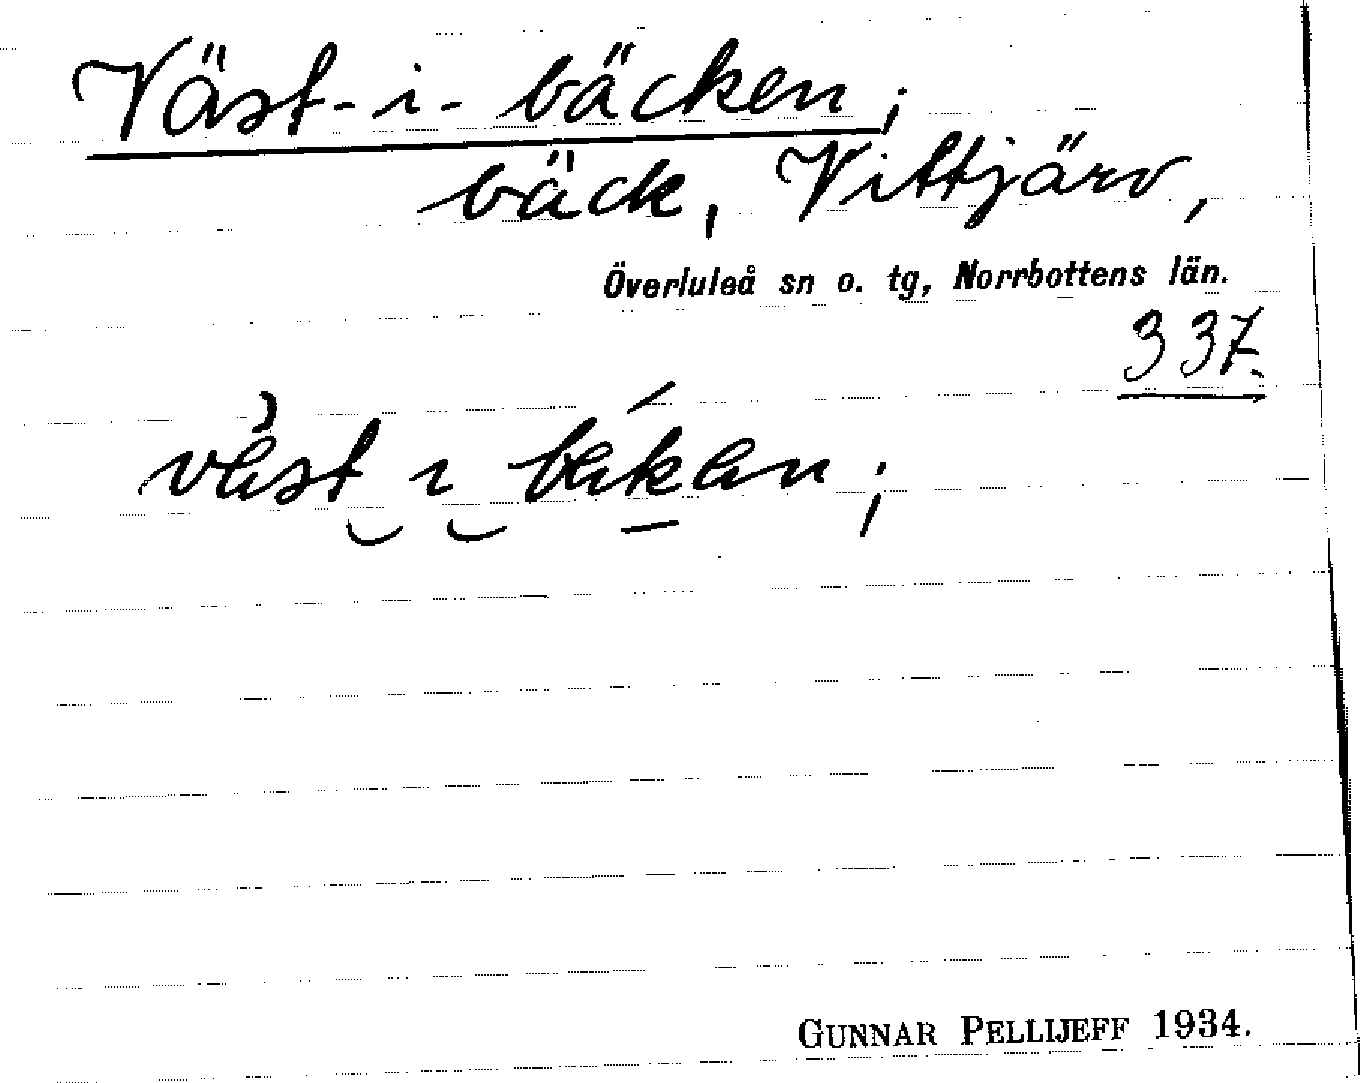 Väst-i-bäcken;
bäck, Vittjärv,
Överluleå sn o. tg, Norrbottens län.
337.
GUNNAR PELLIJEFF 1934.